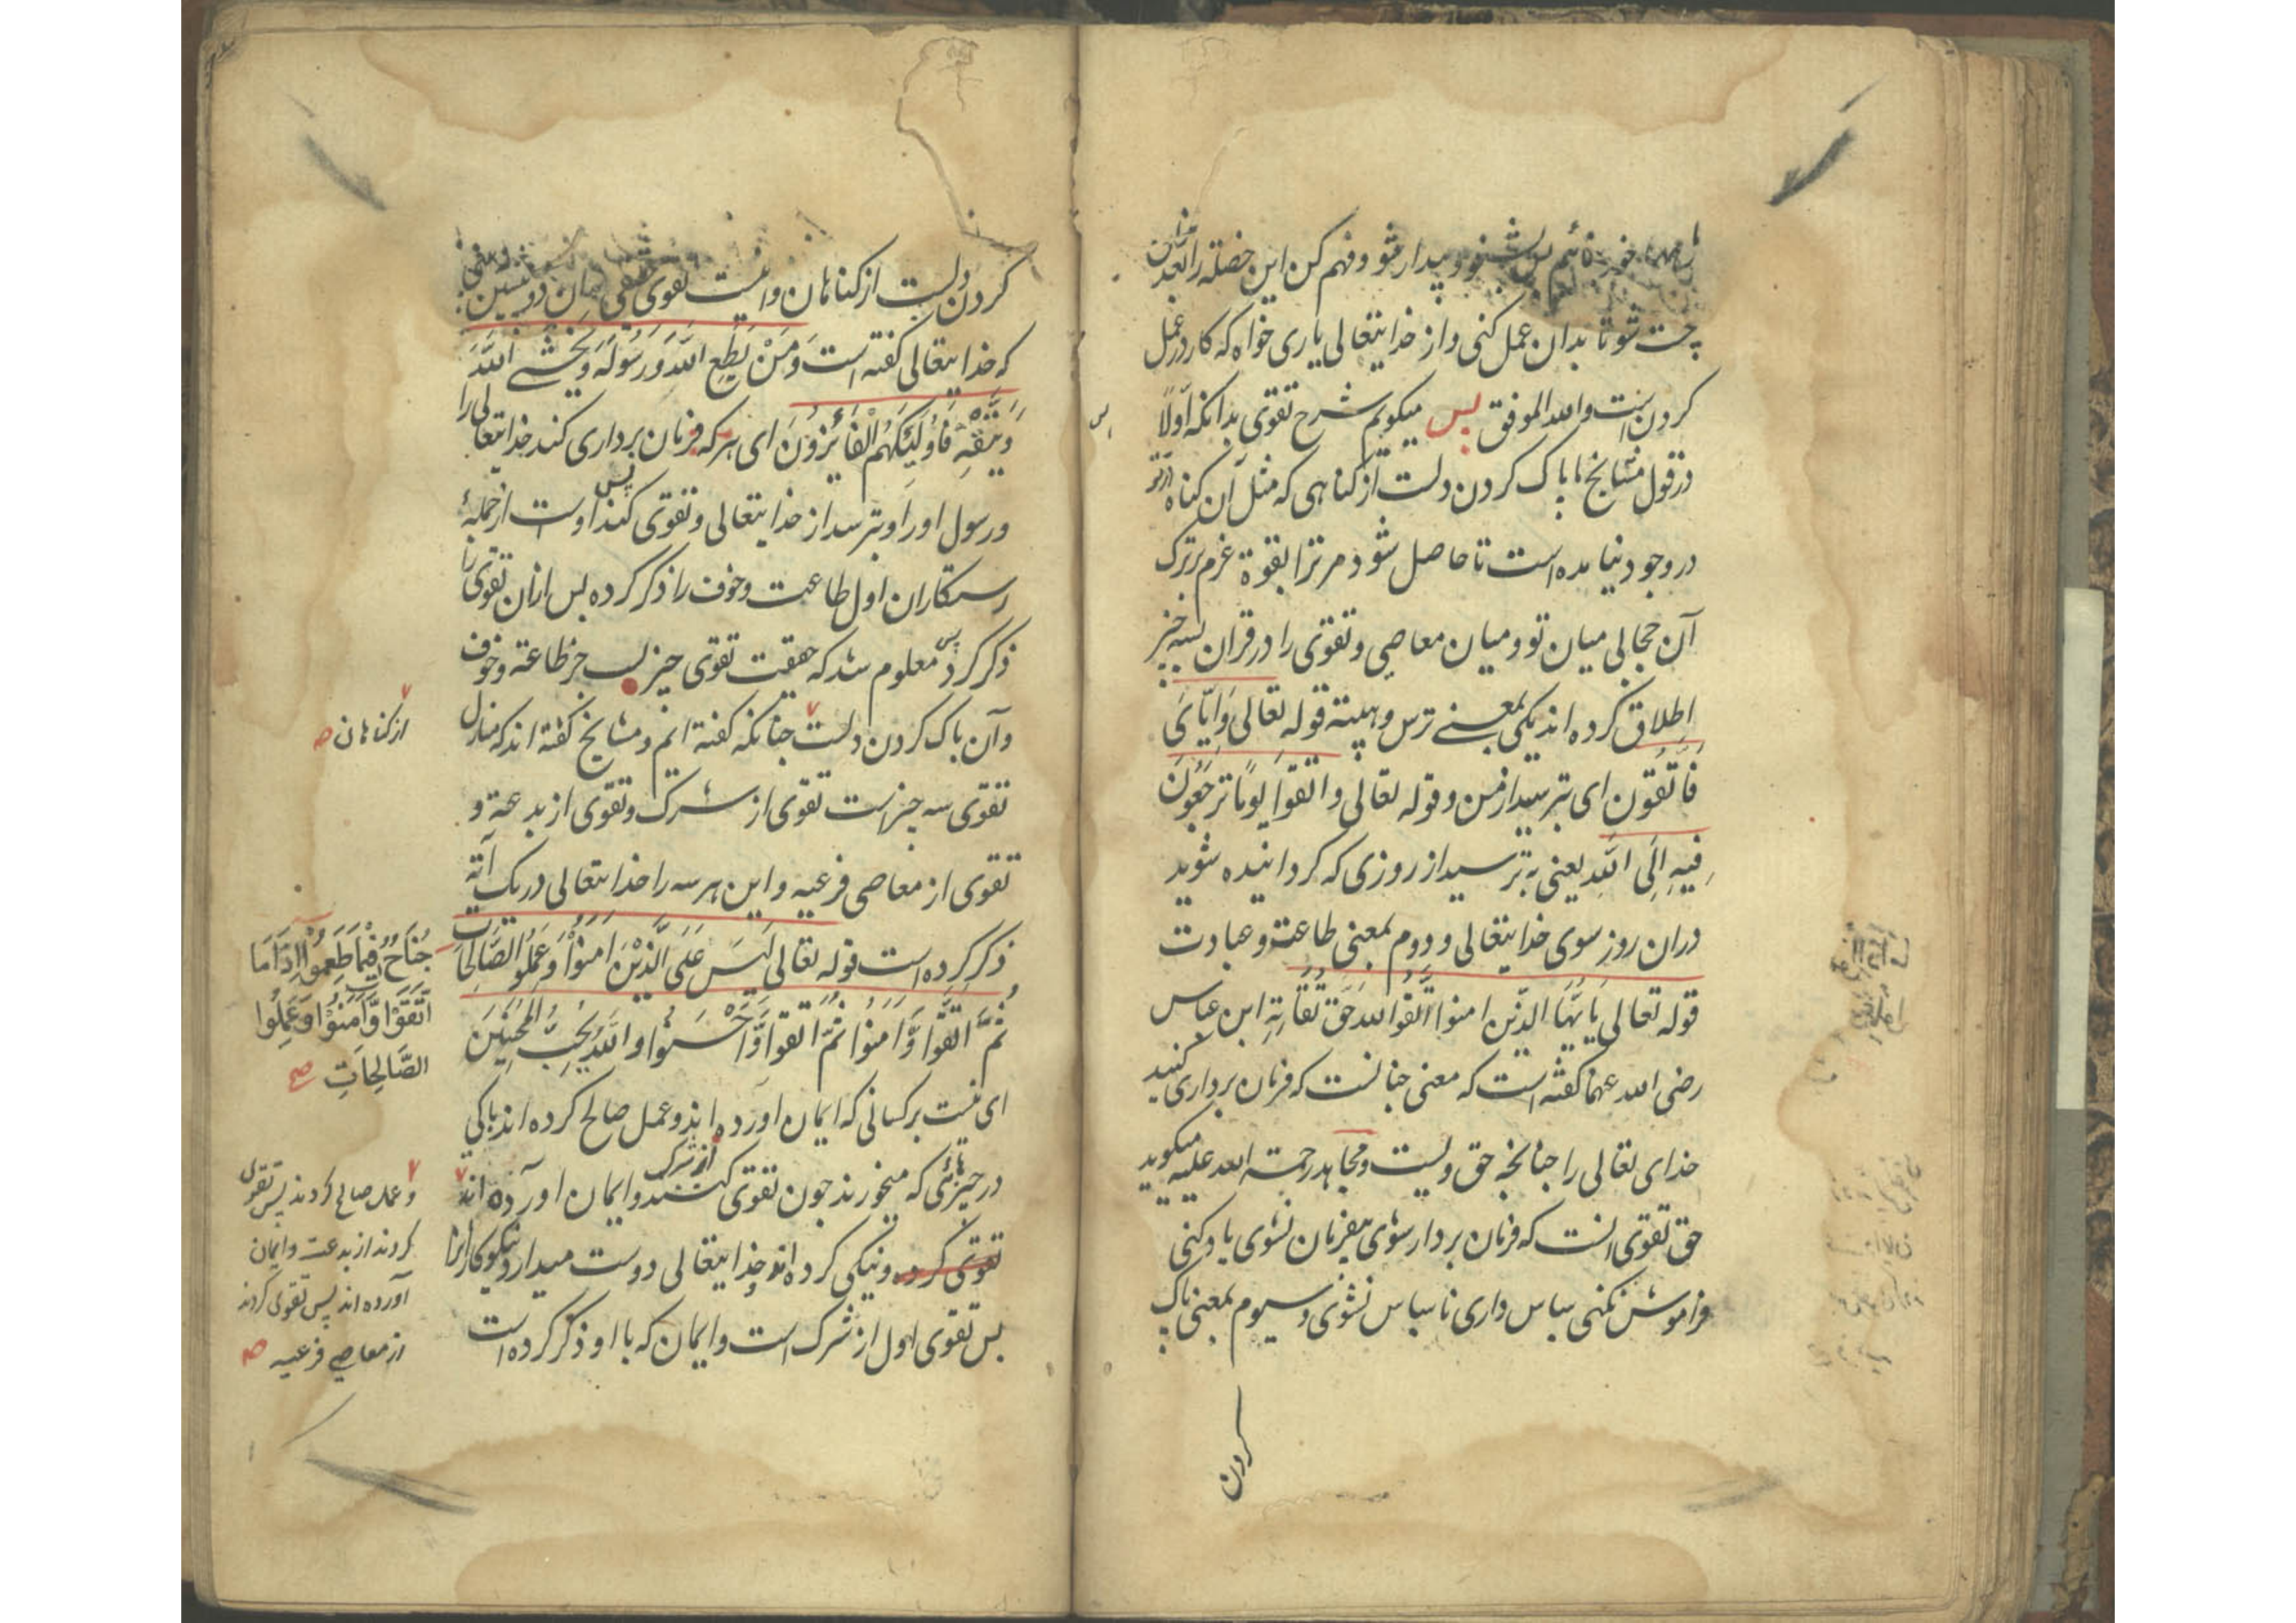 بشنو و بیدار شو و فهم کن این خصلة را بعد ازین
چست شو تا بدان عمل کنی و از خدایتعالی یاری خواه که کار در عمل
کردن است والله الموفق پس میکویم شرح تقوی بدانکه اولا
در قول مشایخ ما پاک کردن دلست از کناهی که مثل آن کناه از تو
در وجود نیامده است تا حاصل شود مر ترا بقوة عزم بر ترک
آن حجابی میان تو و میان معاصی و تقوی را در قران بسه چیز
اطلاق کرده اند یکی بمعنی ترس و هیبة قوله تعالی وَاِیَّایَ
فَاتَّقُونِ ای بترسید از من و قوله تعالی واتَّقُوا یَومًا تُرْجَعُونَ
فِیهِ اِلَی اللهِ یعنی بترسید از روزی که کردانیده شوید
دران روز سوی خدایتعالی و دوم بمعنی طاعة و عبادت
قوله تعالی یایُّهَا الذین امنوا اتَّقُوا الله حَقَّ تُقَاتِهِ ابن عباس
رضی الله عنهما کفته است که معنی چنانست که فرمان برداری کنید
خدای تعالی را چنانچه حق ویست و مجاهد رحمة الله علیه میکوید
حق تقوی آنست که فرمان بردار شوی بیفرمان نشوی یاد کنی
فراموش نکنی سپاس داری ناسپاس نشوی و سیوم بمعنی پاک
کردن
کردن دلست از کناهان و اینست تقوی حقیقی
که خدایتعالی کفته است وَمَنْ یُطِعِ اللهَ وَرَسُولَهُ وَیَخْشَی اللهَ
وَیَتَّقْهِ فَاُولَئِکَ هُمُ الْفَائِزُونَ ای هر که فرمان برداری کند خدایتعالی را
و رسول او را و بترسد از خدایتعالی و تقوی کند پس اوست از جملهٔ
رستکاران اول طاعت و خوف را ذکر کرده پس ازان تقوی را
ذکر کرد پس معلوم شد که حقیقت تقوی چیزیست جز طاعة و خوف
و آن پاک کردن دلست چنانکه کفته ایم و مشایخ کفته اند که منازل
از کناهان صح
تقوی سه چیز است تقوی از شرک و تقوی از بدعة و
تقوی از معاصی فرعیه و این هر سه را خدایتعالی در یک آیة
ذکر کرده است قوله تعالی لَیْسَ عَلَی الَّذِیْنَ امَنُوْا وَعَمِلُو الصَّالِحَاتِ
جُنَاحٌ فِیْمَا طَعِمُوا اِذَا مَا
اتَّقَوْا وَّامَنُوْا وَعَمِلُوا
الصَّالِحَاتِ صح
ثُمَّ اتَّقَوْا وَّامَنُوْا ثُمَّ اتَّقَوا وَّاَحْسَنُوا وَاللهُ یُحِبُّ الْمُحْسِنِیْنَ
ای نیست بر کسانی که ایمان آورده اند و عمل صالح کرده اند باکی
در چیزهائی که میخورند چون تقوی کنند از شرک و ایمان آورده اند
و عمل صالح کردند پس تقوی
کردند از بدعت و ایمان
آورده اند پس تقوی کردند
از معاصی فرعیه صح
تقوی کرده و نیکی کرده اند و خدایتعالی دوست میدارد نیکوکارانرا
پس تقوی اول از شرک است و ایمان که با او ذکر کرده است